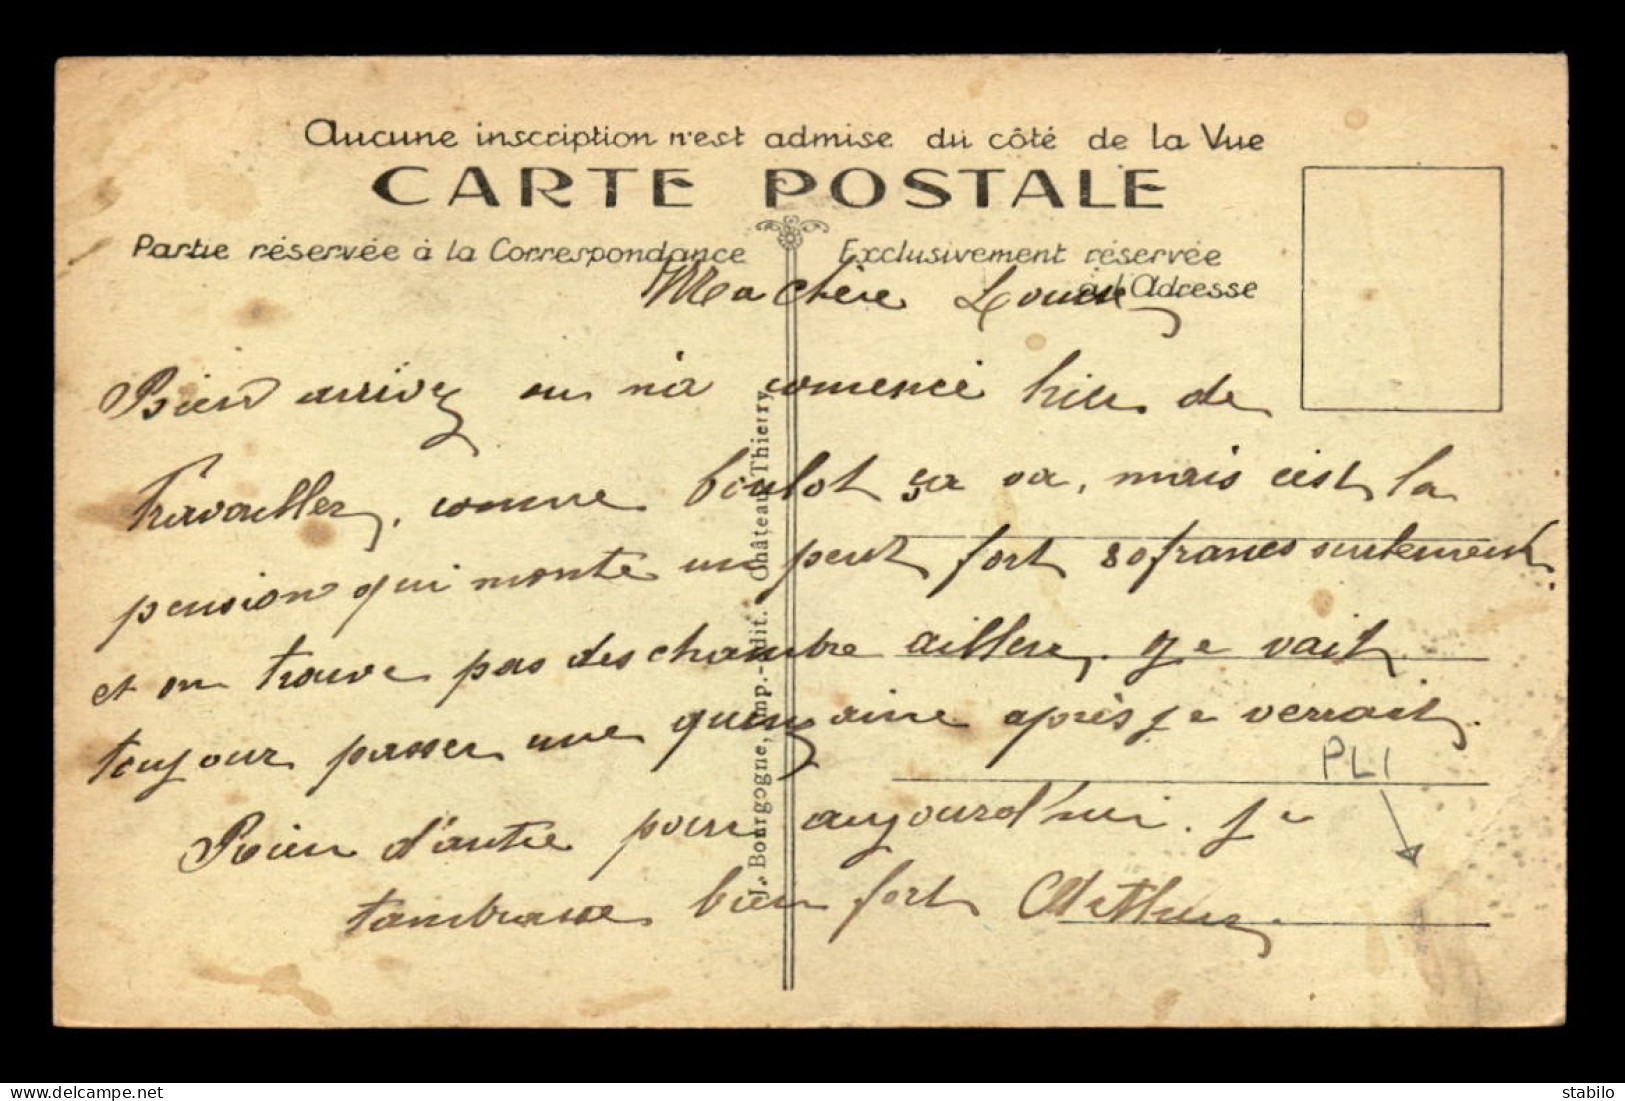 Aucune inscription n'est admise du côté de la Vue
CARTE POSTALE
Partie réservée à la Correspondance
Exclusivement réservée
à l'Adresse
Ma Chère Louise
Bien arrivez on n'a comencé hier de
Travailler, comme boulot ça va, mais c'est la
pension qui monte un peut fort 80 francs seulement.
et on trouve pas des chambre ailleurs. Je vait
toujour passer une quinzaine après je verrait.
Rien d'autre pour aujourd'hui. Je
tambrasse bien fort Arthur.
PLI
J. Bourgogne, Imp.-Edit. Château-Thierry
stabilo